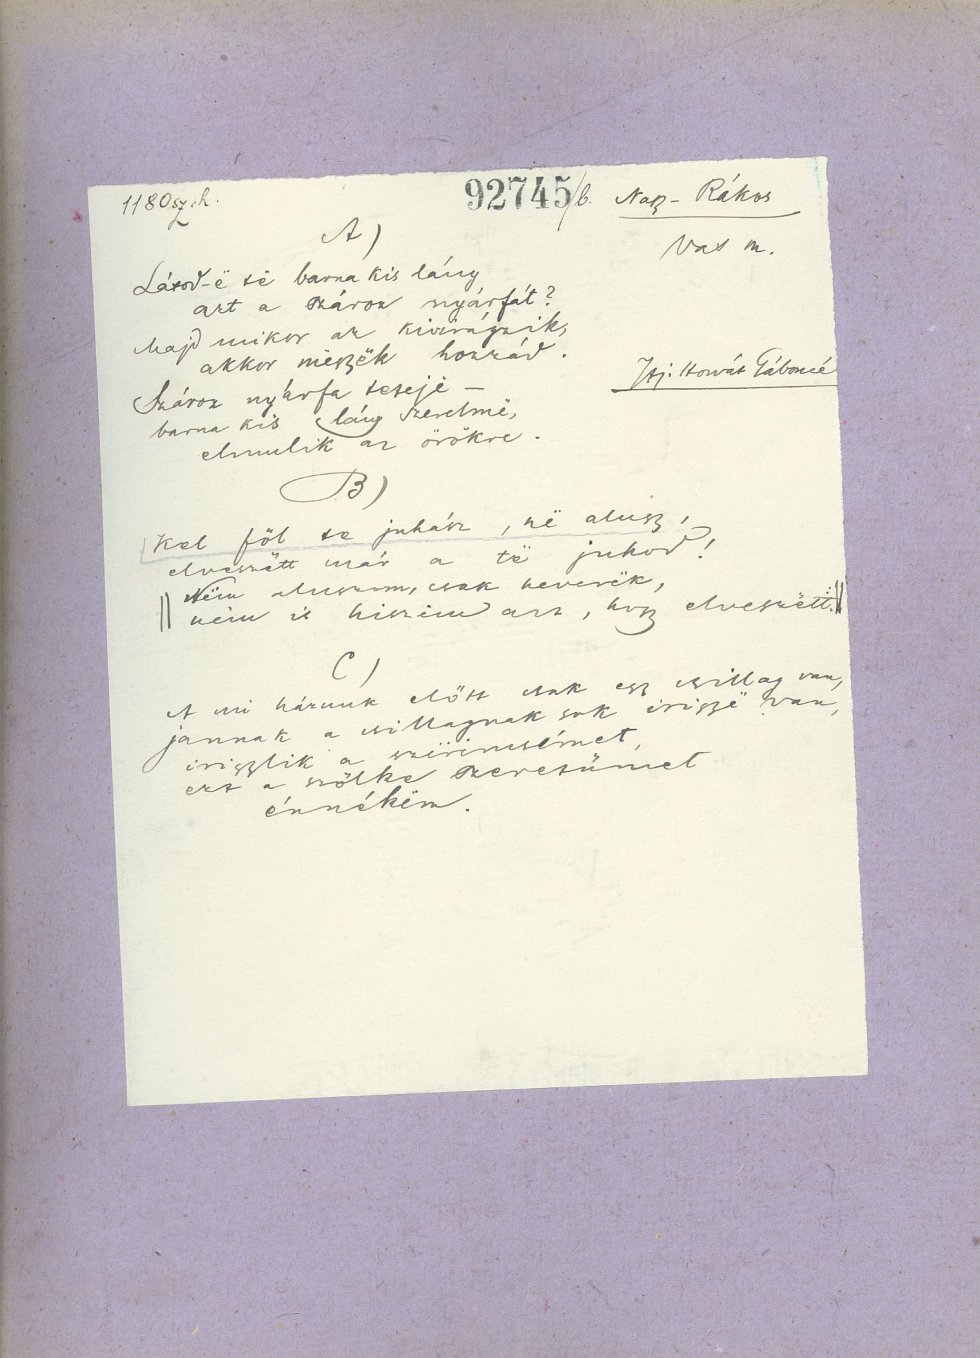 1180sz.h.
92745/b.
Nagy-Rákos
Vas m.
A)
Látod-ë të barna kis lány
azt a szároz nyárfát?
Majd mikor az kivirágzik,
akkor mëgyëk hozzád.
Ifj. Horvát Gáborné
Szároz nyárfa tetejë —
barna kis lány szerelmë,
elmulik az örökre.
B)
Kel föl te juhász, në alusz,
elveszëtt már a të juhod!
Nëm aluszom, csak heverëk,
nëm is hiszëm azt, hogy elveszëtt.
C)
A mi házunk előtt csak egy csillag van,
jannak a csillagnak sok irigyë van,
irigylik a
ezt a szőlke szeretőmet
énnékëm.